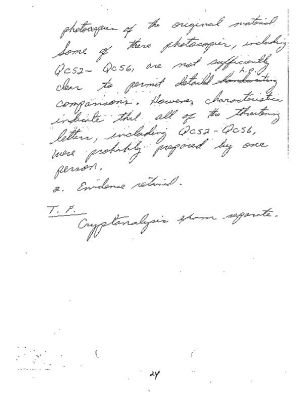 photocopies of the original material
Some of these photocopies, including
Qc52- Qc56, are not sufficiently
clear to permit detailed
comparisons. However, characteristics
indicate that all of the threatening
letters, including Qc52-Qc56,
were probably prepared by one
person.
2. Evidence retained.
T. P.
Cryptanalysis exam separate.
24